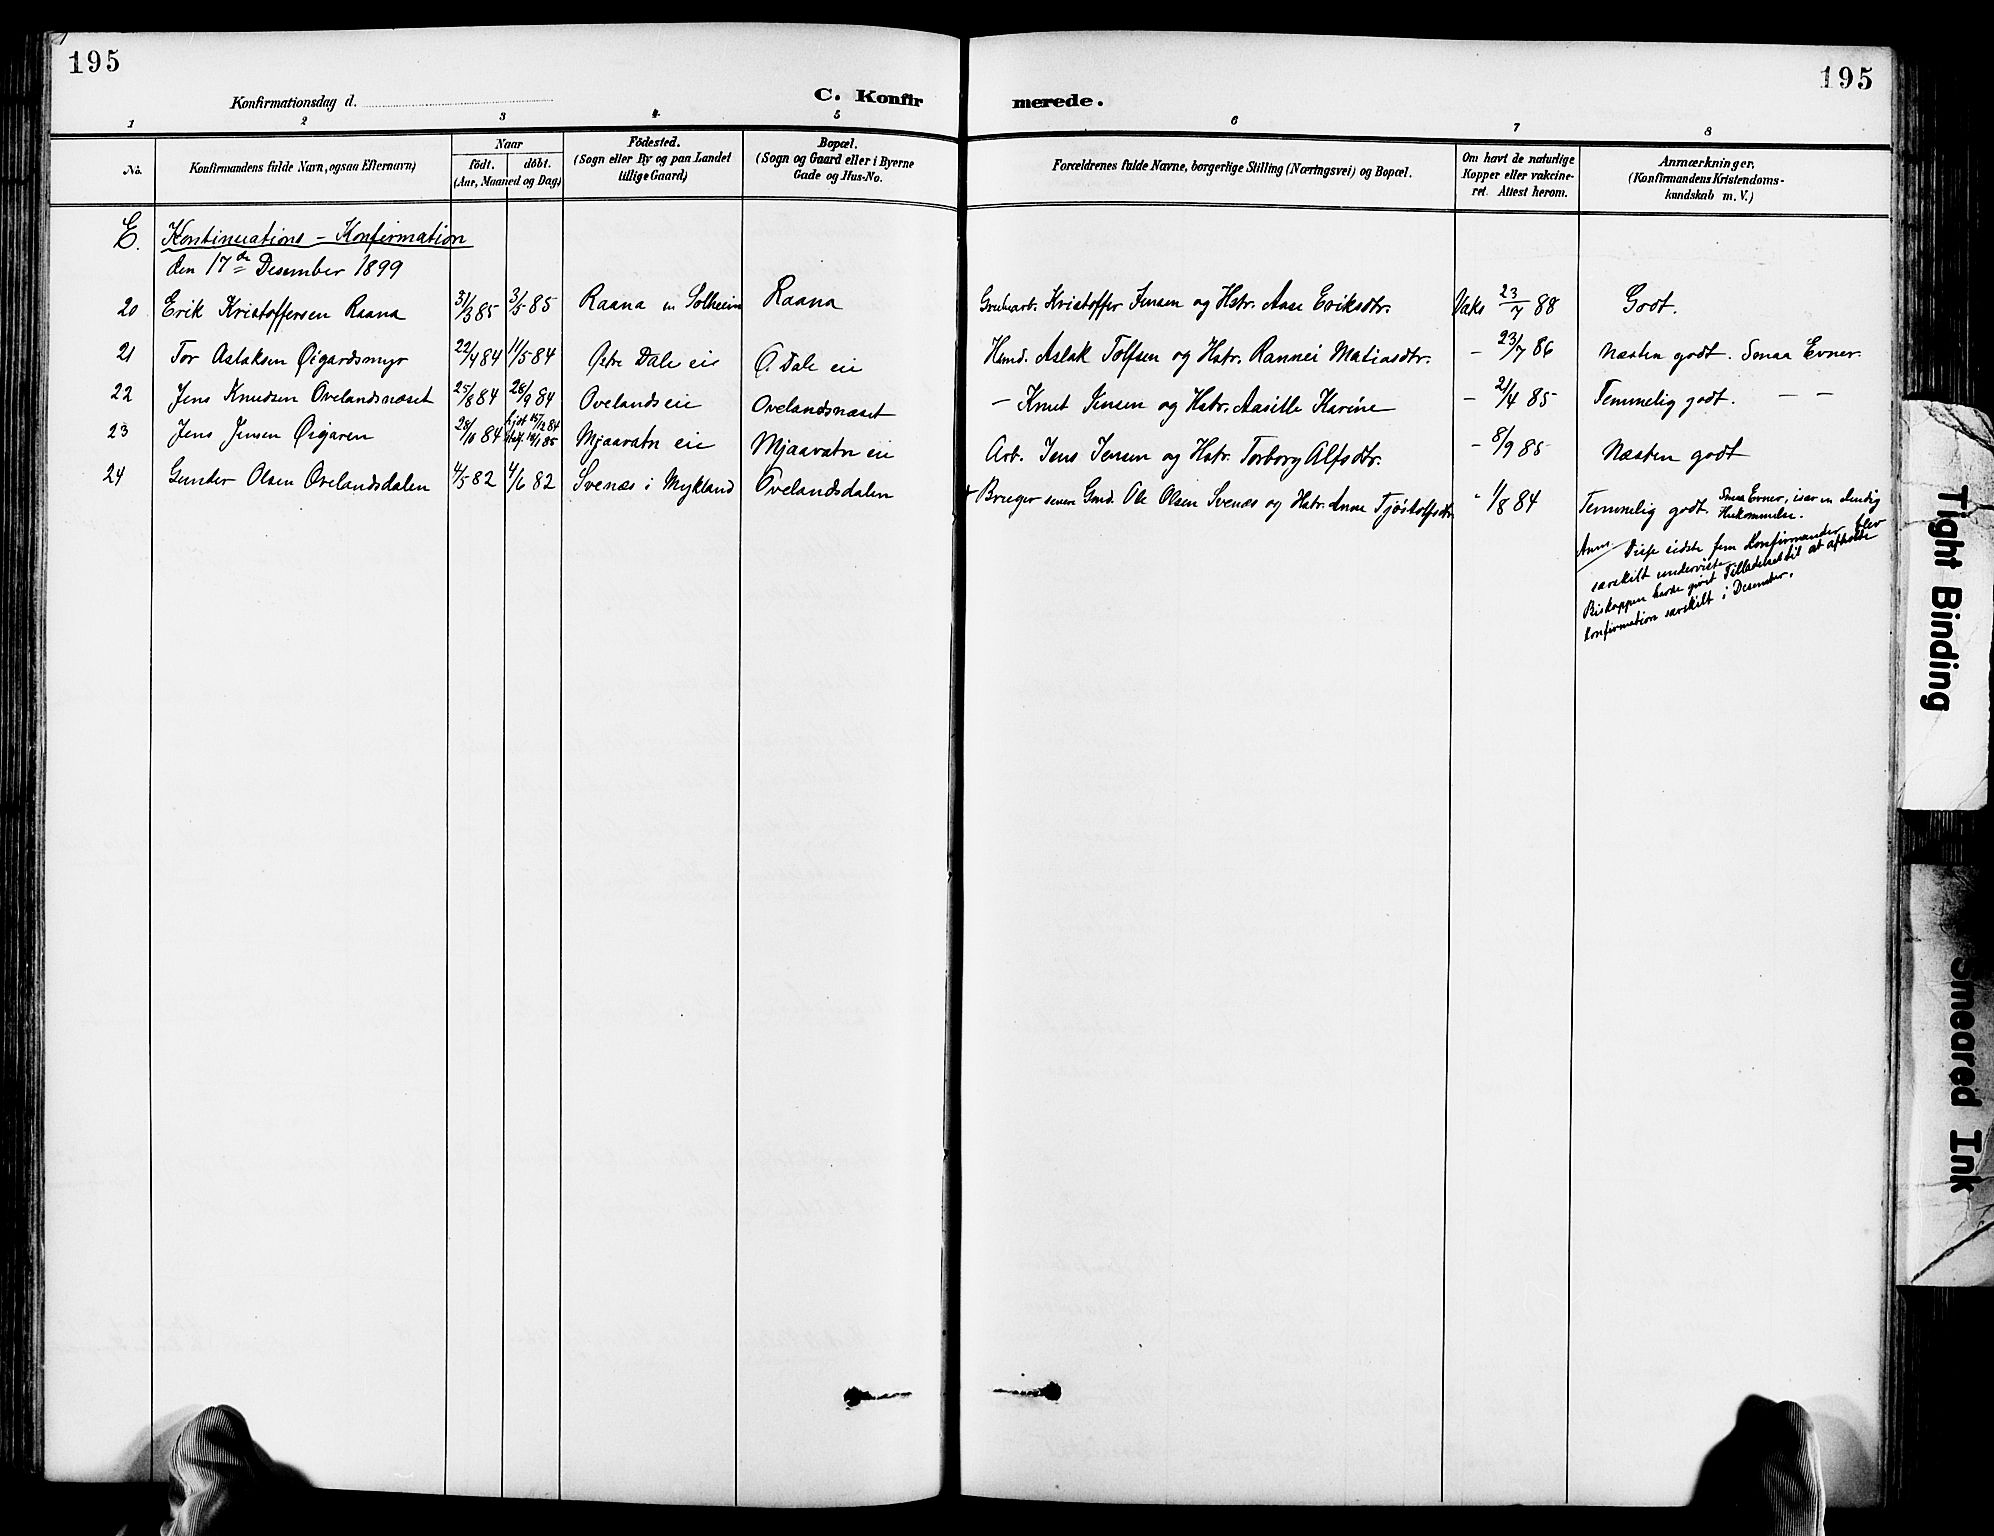 195
195
Konfirmationsdag d.
C. Konfir
merede.
1 2 3 4 5 6 7 8
No.
Konfirmandens fulde Navn, ogsaa Efternavn)
Naar
født. døbt.
(Aar, Maaned og Dag)
Fødested.
(Sogn eller By og paa Landet
tillige Gaard)
Bopæl.
(Sogn og Gaard eller i Byerne
Gade og Hus-No.
Forældrenes fulde Navne, borgerlige Stilling (Næringsvei) og Bopæl.
Om havt de naturlige
Kopper eller vakcine-
ret. Attest herom.
Anmærkninger.
(Konfirmandens Kristendoms-
kundskab m. V.)
E. Kontinuations - Konfirmation
den 17de Desember 1899
20 Erik Kristoffersen Raana 31/3 85 3/5 85 Raana u Solheim Raana Grubearb. Kristoffer Jensen og Hstr. Aase Eriksdtr. Vaks 23/7 88 Godt.
21 Tor Aslaksen Øigardsmyr 22/4 84 11/5 84 Østre Dale eie Ø. Dale eie Hmd. Aslak Tolfsen og Hstr. Rannei Matiasdtr. - 23/7 86 Næsten godt. Smaa Evner.
22 Jens Knudsen Ovelandsnæset 25/8 84 28/9 84 Ovelandseie Ovelandsnæset - Knut Jensen og Hstr. Aasille Karine - 2/4 85 Temmelig godt. - -
23 Jens Jensen Øigaren 28/10 84 hjdt 15/12 84 stadf. 18/1 85 Mjaavatn eie Mjaavatn eie Arb. Jens Jensen og Hstr. Torborg Alfsdtr. - 8/9 85 Næsten godt
24 Gunder Olsen Ovelandsdalen 4/5 82 4/6 82 Svenæs i Mykland Ovelandsdalen + Bruger senere Gmd. Ole Olsen Svenæs og Hstr. Anne Tjøstolfsdtr. " 1/8 84 Temmelig godt. Smaa Evner, især en daarlig
Hukommelse.
Anm. Disse sidste fem Konfirmander blev
særskilt underviste
Biskoppen havde givet Tilladelse til at afholde
Konfirmation særskilt i Desember.
Tight Binding
Smeared Ink